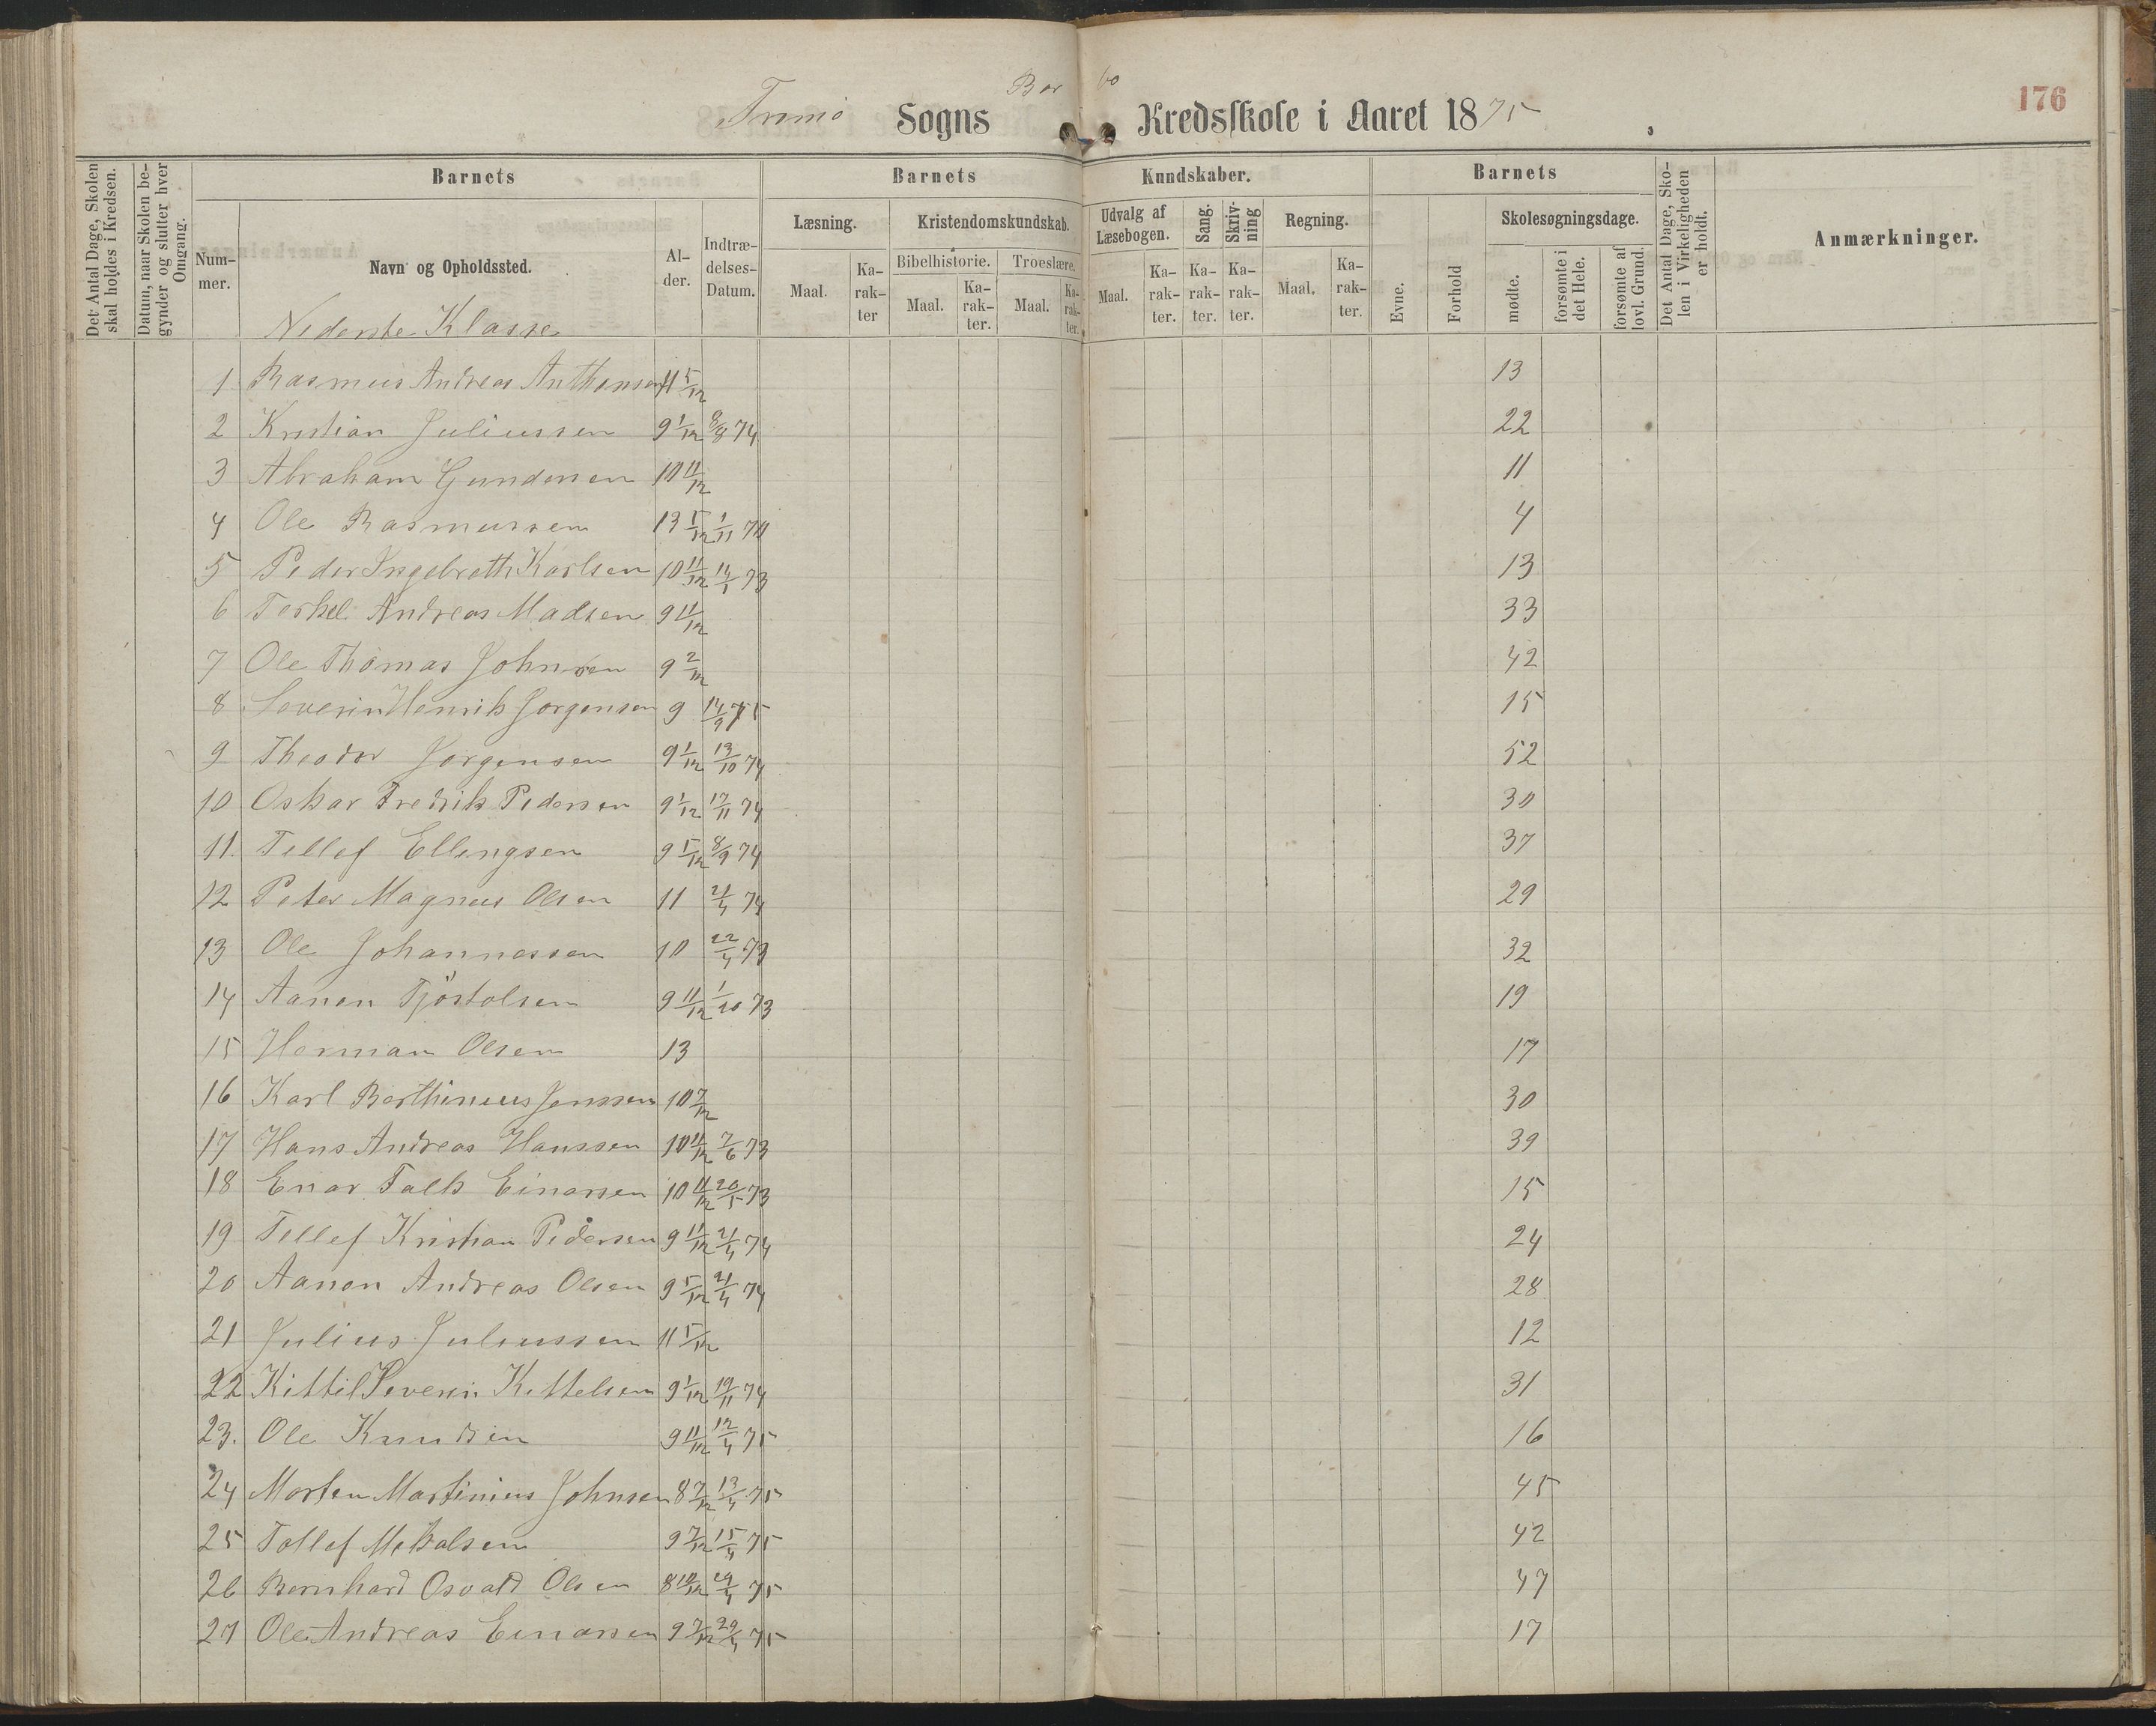 Tromö Sogns Bor bo Kredsskole i Aaret 1875.
176
Det Antal Dage, Skolen skal holdes i Kredsen.
Datum, naar Skolen begynder og slutter hver Omgang.
Barnets
Barnets
Kundskaber.
Barnets
Nummer.
Navn og Opholdssted.
Alder.
Indtrædelses-Datum.
Læsning.
Kristendomskundskab.
Udvalg af Læsebogen.
Sang.
Skrivning
Regning.
Skolesøgningsdage.
Det Antal Dage, Skolen i Virkeligheden er holdt.
Anmærkninger.
Bibelhistorie.
Troeslære.
Maal.
Karakter
Maal.
Karakter.
Maal.
Karakter.
Maal.
Karakter.
Karakter.
Karakter.
Maal.
Karakter.
Evne.
Forhold
mødte.
forsømte i det Hele.
forsømte af lovl. Grund.
Nederste Klasse
1 Rasmus Andreas Anthonsen 11 5/12 13
2 Kristian Juliussen 9 1/12 8/9 74 22
3 Abraham Gundersen 10 11/12 11
4 Ole Rasmussen 13 5/12 1/11 70 4
5 Peder Ingebreth Karlsen 10 11/12 73 13
6 Terkel Andreas Madsen 9 11/12 33
7 Ole Thomas Johnsen 9 2/12 42
8 Severin Henrik Jorgensen 9 14/9 75 15
9 Theodor Jorgensen 9 1/12 13/10 74 52
10 Oskar Fredrik Pedersen 9 1/12 17/11 74 30
11. Tellef Ellingsen 9 5/12 8/9 74 37
12 Peter Magnus Olsen 11 21/4 74 29
13 Ole Johannessen 10 22/4 73 32
14 Aanon Tjöstolsen 9 11/12 1/10 73 19
15 Herman Olsen 13 17
16 Karl Berthinius Jenssen 10 7/12 30
17 Hans Andreas Hanssen 10 11/12 7/6 73 39
18 Enar Falk Einarsen 10 11/12 20/5 73 15
19 Tellef Kristian Pedersen 9 11/12 21/4 74 24
20 Aanon Andreas Olsen 9 5/12 21/4 74 28
21 Julius Juliussen 11 5/12 12
22 Kittil Severin Kittelsen 9 1/12 19/11 74 31
23. Ole Knudsen 9 11/12 12/4 75 16
24 Morten Martinius Johnsen 8 7/12 13/4 75 45
25 Tollef Mikalsen 9 7/12 15/4 75 42
26 Bernhard Osvald Olsen 8 10/12 29/4 75 47
27 Ole Andreas Einarsen 9 7/12 29/4 75 17